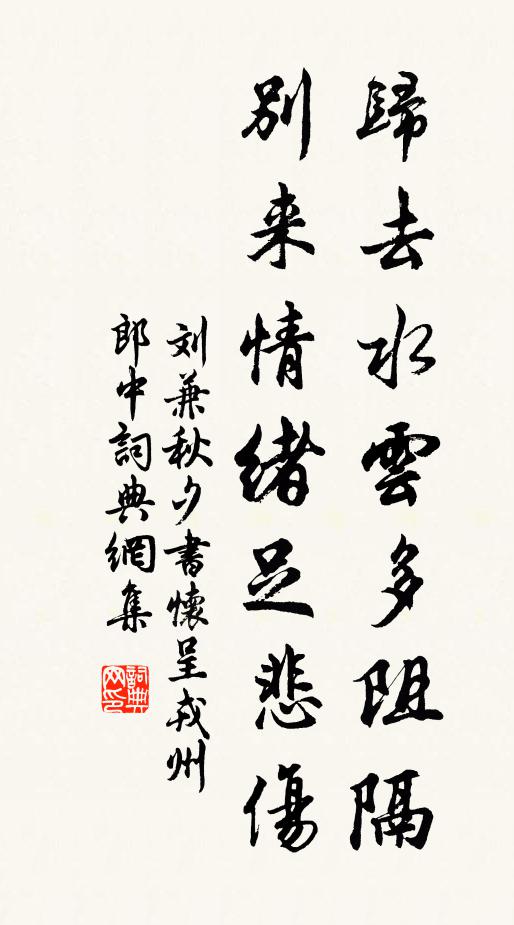 歸去水雲多阻隔
別来情緒足悲傷
刘兼秋夕書懷呈戎州
郎中詞典網集
詞典
网印